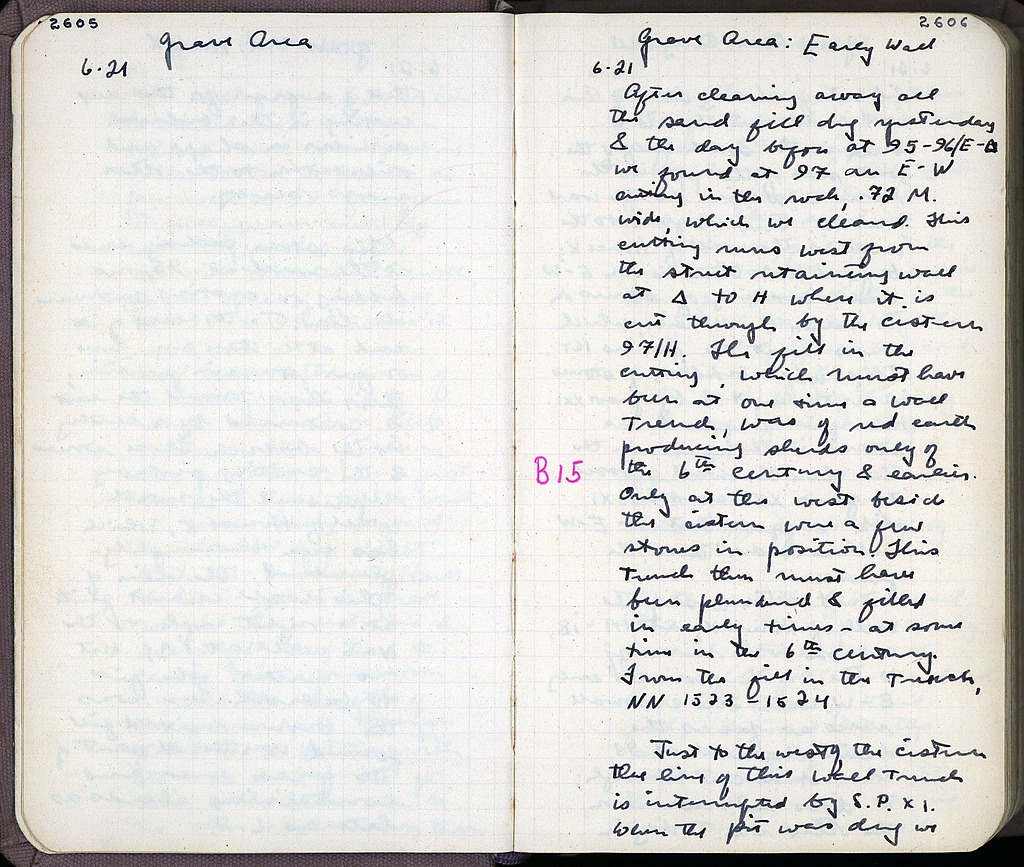 2605
Grave Area
6.21
2606
Grave Area: Early Wall
6.21
After clearing away all
the sand fill dug yesterday
& the day before at 95-96/E-Δ
we found at 97 an E-W
cutting in the rock, .72 M.
wide, which we cleared. This
cutting runs west from
the street retaining wall
at Δ to H where it is
cut through by the cistern
97/H. The fill in the
cutting, which must have
been at one time a wall
trench, was of red earth
producing sherds only of
B15
the 6th century & earlier.
Only at the west beside
the cistern were a few
stones in position. This
trench then must have
been plundered & filled
in early times - at some
time in the 6th century.
From the fill in the trench,
NN 1523-1524
Just to the west of the cistern
the line of this wall trench
is interrupted by S.P. XI.
When the pit was dug we